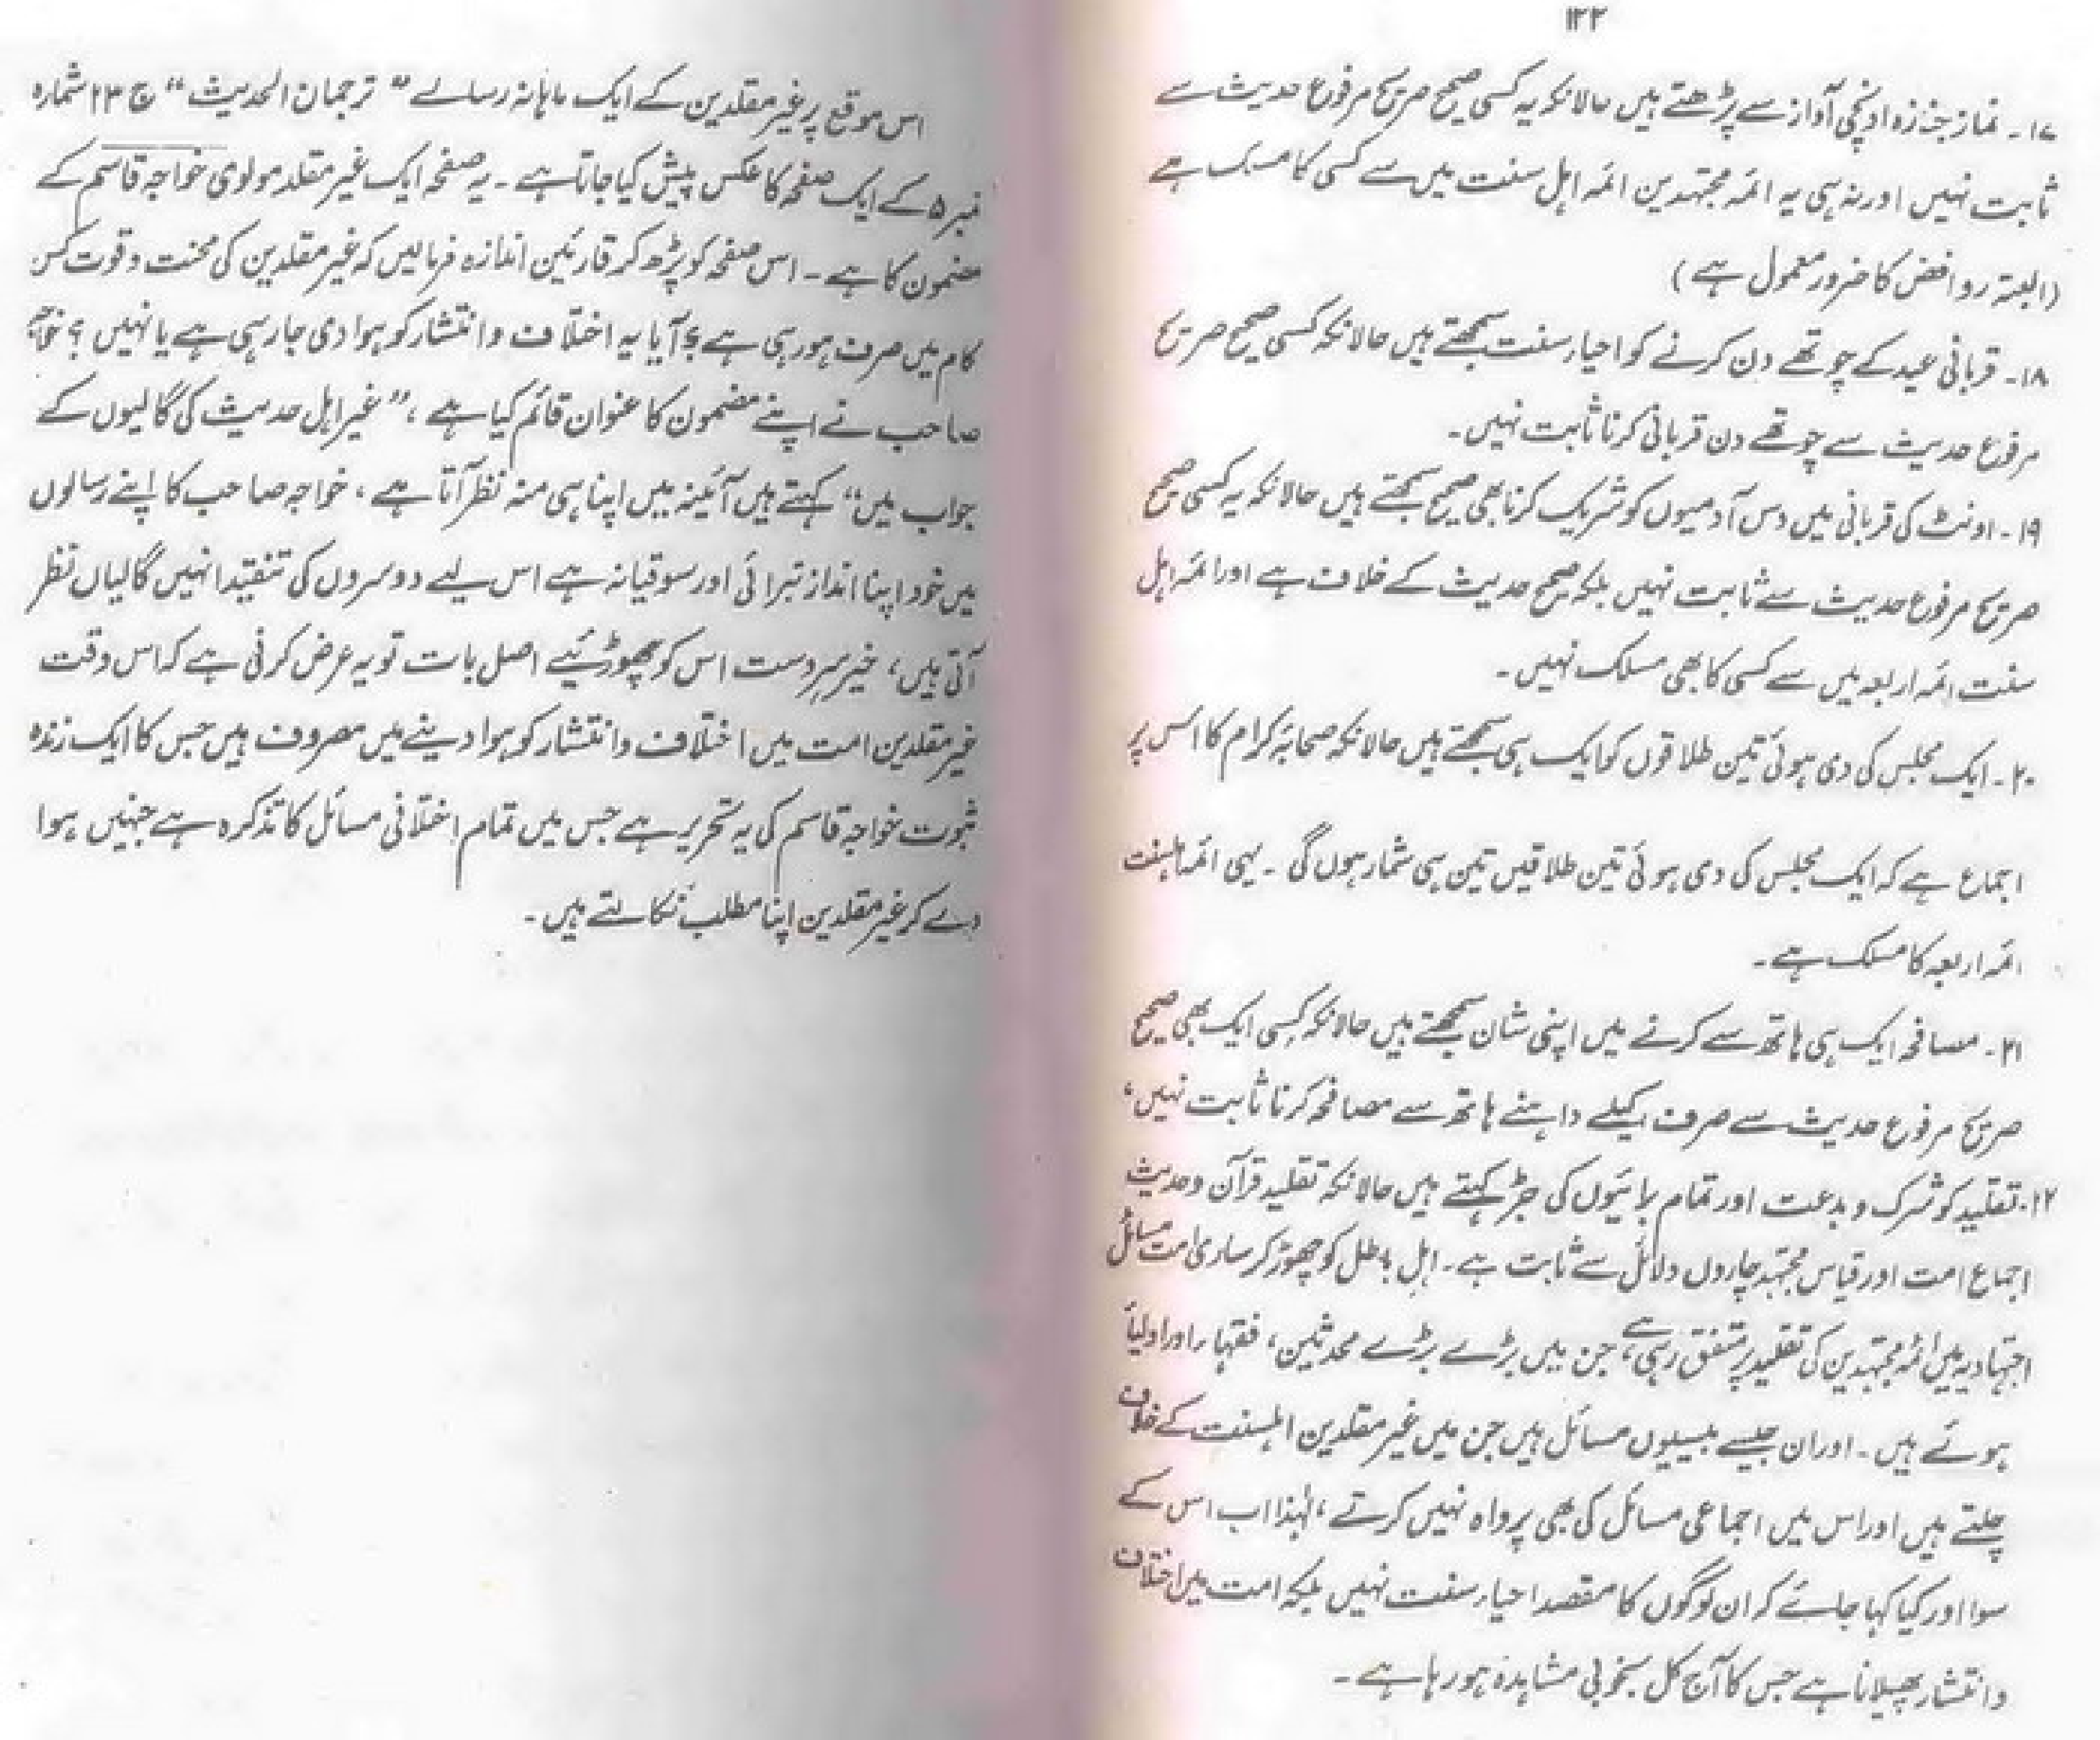 ۱۲۲
۱۷۔ نماز جنازہ اونچی آواز سے پڑھتے ہیں حالانکہ یہ کسی صحیح صریح مرفوع حدیث سے
ثابت نہیں اور نہ ہی یہ ائمہ مجتہدین ائمہ اہل سنت میں سے کسی کا مسلک ہے
(البتہ روافض کا ضرور معمول ہے)
۱۸۔ قربانی عید کے چوتھے دن کرنے کو احیاء سنت سمجھتے ہیں حالانکہ کسی صحیح صریح
مرفوع حدیث سے چوتھے دن قربانی کرنا ثابت نہیں۔
۱۹۔ اونٹ کی قربانی میں دس آدمیوں کو شریک کرنا بھی صحیح سمجھتے ہیں حالانکہ یہ کسی صحیح
صریح مرفوع حدیث سے ثابت نہیں بلکہ صحیح حدیث کے خلاف ہے اور ائمہ اہل
سنت ائمہ اربعہ میں سے کسی کا بھی مسلک نہیں۔
۲۰۔ ایک مجلس کی دی ہوئی تین طلاقوں کو ایک ہی سمجھتے ہیں حالانکہ صحابہ کرام کا اس پر
اجماع ہے کہ ایک مجلس کی دی ہوئی تین طلاقیں تین ہی شمار ہوں گی۔ یہی ائمہ اہلسنت
ائمہ اربعہ کا مسلک ہے۔
۲۱۔ مصافحہ ایک ہی ہاتھ سے کرنے میں اپنی شان سمجھتے ہیں حالانکہ کسی ایک بھی صحیح
صریح مرفوع حدیث سے صرف اکیلے داہنے ہاتھ سے مصافحہ کرنا ثابت نہیں،
۲۲۔ تقلید کو شرک و بدعت اور تمام برائیوں کی جڑ کہتے ہیں حالانکہ تقلید قرآن و حدیث
اجماع امت اور قیاس مجتہد چاروں دلائل سے ثابت ہے۔ اہل باطل کو چھوڑ کر ساری امت مسائل
اجتہادیہ میں ائمہ مجتہدین کی تقلید پر متفق رہی ہے، جن میں بڑے بڑے محدثین، فقہاء اور اولیاء
ہوئے ہیں۔ اور ان جیسے بیسیوں مسائل ہیں جن میں غیر مقلدین اہلسنت کے خلاف
چلتے ہیں اور اس میں اجماعی مسائل کی بھی پرواہ نہیں کرتے، لہٰذا اب اس کے
سوا اور کیا کہا جائے کہ ان لوگوں کا مقصد احیاء سنت نہیں بلکہ امت میں اختلاف
و انتشار پھیلانا ہے جس کا آج کل بخوبی مشاہدہ ہو رہا ہے۔
اس موقع پر غیر مقلدین کے ایک ماہانہ رسالے "ترجمان الحدیث" ج ۲۳ شمارہ
نمبر ۵ کے ایک صفحہ کا عکس پیش کیا جاتا ہے۔ یہ صفحہ ایک غیر مقلد مولوی خواجہ قاسم کے
مضمون کا ہے۔ اس صفحہ کو پڑھ کر قارئین اندازہ فرمالیں کہ غیر مقلدین کی محنت و قوت کس
کام میں صرف ہو رہی ہے؟ آیا یہ اختلاف و انتشار کو ہوا دی جا رہی ہے یا نہیں؟ خواجہ
صاحب نے اپنے مضمون کا عنوان قائم کیا ہے، "غیر اہل حدیث کی گالیوں کے
جواب میں" کہتے ہیں آئینہ میں اپنا ہی منہ نظر آتا ہے، خواجہ صاحب کا اپنے رسالوں
میں خود اپنا انداز تبرائی اور سوقیانہ ہے اس لیے دوسروں کی تنقید انہیں گالیاں نظر
آتی ہیں، خیر سرِدست اس کو چھوڑئیے اصل بات تو یہ عرض کرنی ہے کہ اس وقت
غیر مقلدین امت میں اختلاف و انتشار کو ہوا دینے میں مصروف ہیں جس کا ایک زندہ
ثبوت خواجہ قاسم کی یہ تحریر ہے جس میں تمام اختلافی مسائل کا تذکرہ ہے جنہیں ہوا
دے کر غیر مقلدین اپنا مطلب نکالتے ہیں۔